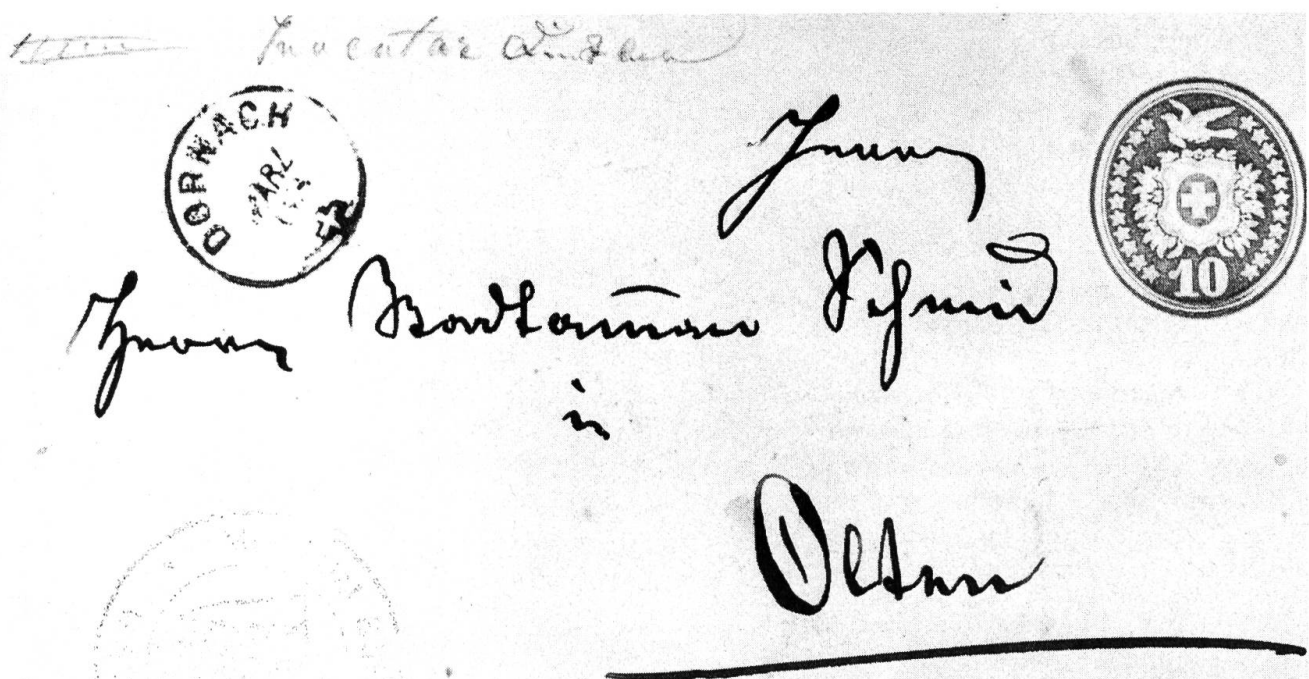 Inventar
DORNACH
10
Herrn
Herrn Stadtam̄an Schmid
in
Olten